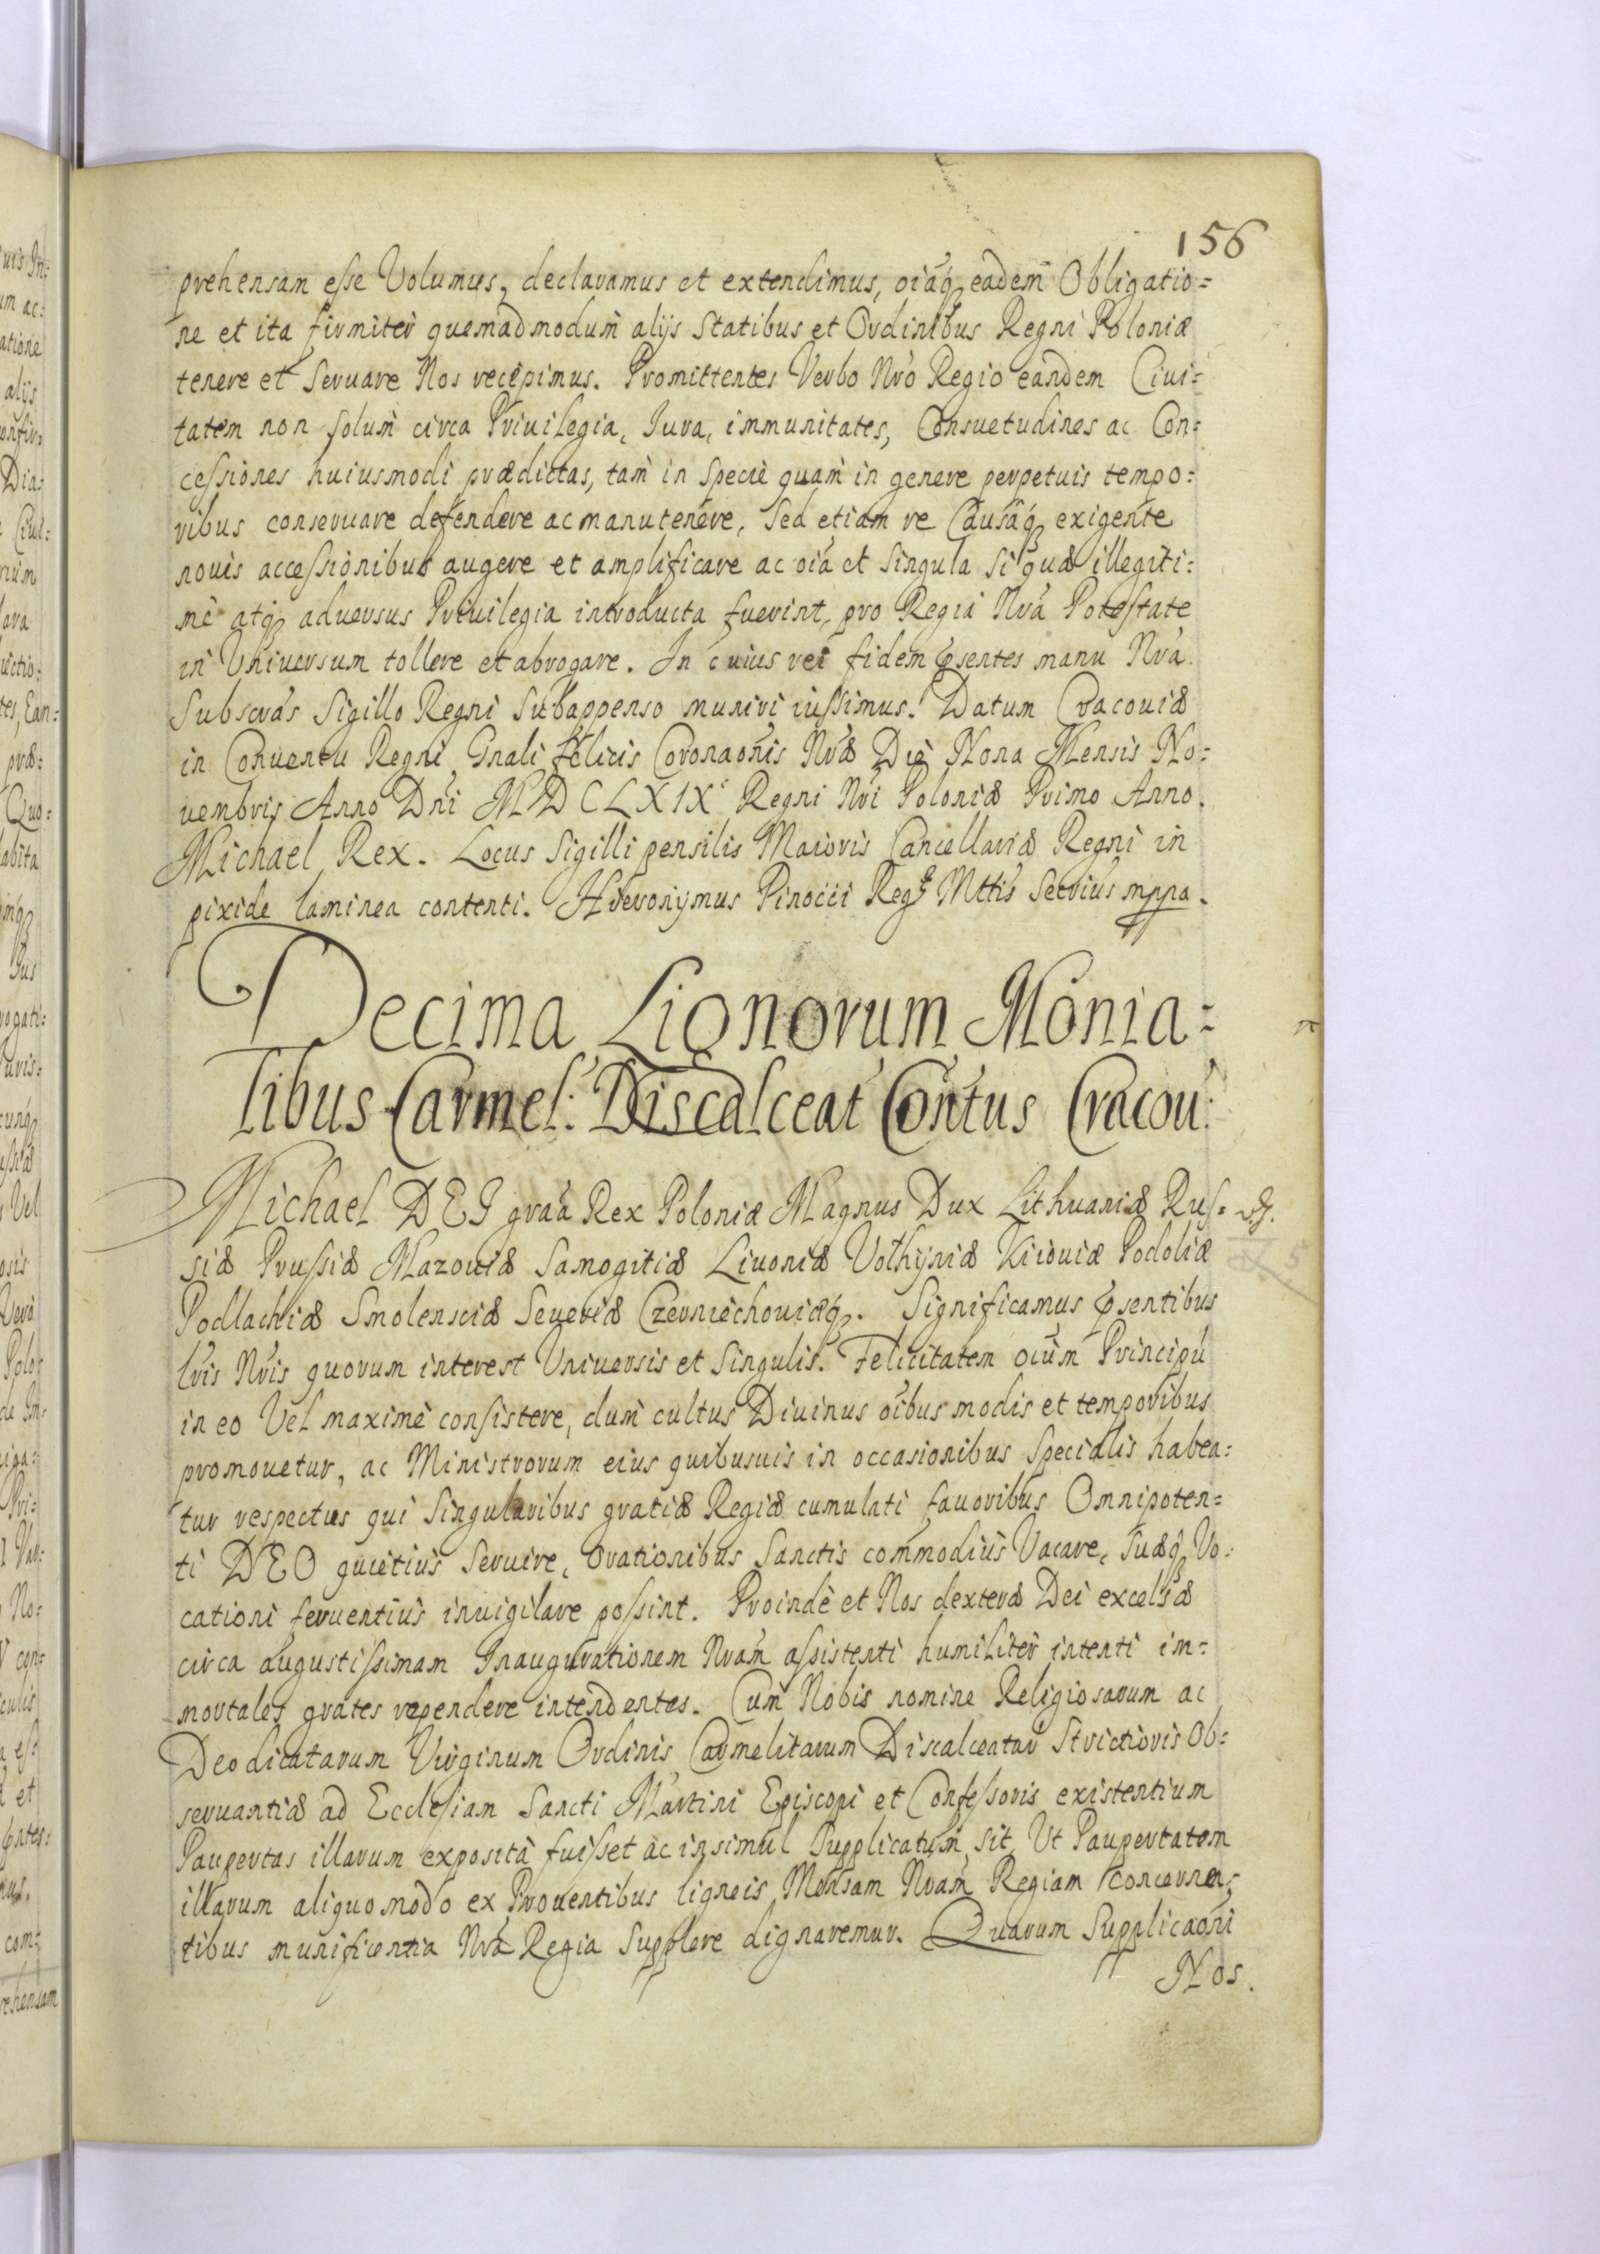 156
prehensam esse Volumus, declaramus et extendimus, oiaq̃ eadem Obligatio=
ne et ita firmiter quemadmodum alijs Statibus et Ordinibus Regni Poloniæ
tenere et Seruare Nos recepimus. Promittentes Verbo Nrõ Regio eandem Ciui=
tatem non solum circa Priuilegia, Iura, immunitates, Consuetudines ac Con=
cessiones huiusmodi prædictas, tam in Specie quam in genere perpetuis tempo=
ribus conseruare defendere ac manutenere, Sed etiam re Causaq̃ exigente
nouis accessionibus augere et amplificare ac oia et Singula Si quæ illegiti=
mè atq̃ aduersus Priuilegia introducta fuerint, pro Regia Nrã Potestate
in Vniuersum tollere et abrogare. In cuius rei fidem p̃sentes manu Nrã
Subscrãs Sigillo Regni Subappenso muniri iussimus. Datum Cracouiæ
in Conuentu Regni Gnali felicis Coronaonis Nræ Die Nona Mensis No=
uembris Anno Dni MDCLXIX Regni Nri Poloniæ Primo Anno.
Michael Rex. Locus Sigilli pensilis Maioris Cancellariæ Regni in
pixide laminea contenti. Hieronymus Pinocci Reg Mttis Secrius mppa.
Decima Lignorum Monia=
libus Carmel: Discalceat Contus Cracou:
Michael DEI graã Rex Poloniæ Magnus Dux Lithuaniæ Rus=
siæ Prussiæ Mazouiæ Samogitiæ Liuoniæ Volhyniæ Kiiouiæ Podoliæ
Podlachiæ Smolensciæ Seueriæ Czerniechouiæq̃. Significamus p̃sentibus
Lris Nris quorum interest Vniuersis et Singulis. Felicitatem oium Principũ
in eo Vel maximè consistere, dum cultus Diuinus oibus modis et temporibus
promouetur, ac Ministrorum eius quibusuis in occasionibus Specialis habea=
tur respectus qui Singularibus gratiæ Regiæ cumulati fauoribus Omnipoten=
ti DEO quietius Seruire, Orationibus Sanctis commodius Vacare, Suæq̃ Vo=
cationi feruentius inuigilare possint. Proindè et Nos dexteræ Dei excelsæ
circa augustissimam Inaugurationem Nram assistenti humiliter intenti im=
mortales grates rependere intendentes. Cum Nobis nomine Religiosarum ac
Deo dicatarum Virginum Ordinis Carmelitarum Discalceatar Strictioris Ob=
seruantiæ ad Ecclesiam Sancti Martini Episcopi et Confessoris existentium
Paupertas illarum exposita fuisset ac insimul Supplicatum sit, Ut Paupertatem
illarum aliquo modo ex Prouentibus ligneis Mensam Nram Regiam concernen=
tibus munificentia Nra Regia Supplere dignaremur. Quarum Supplicaoni
Nos.